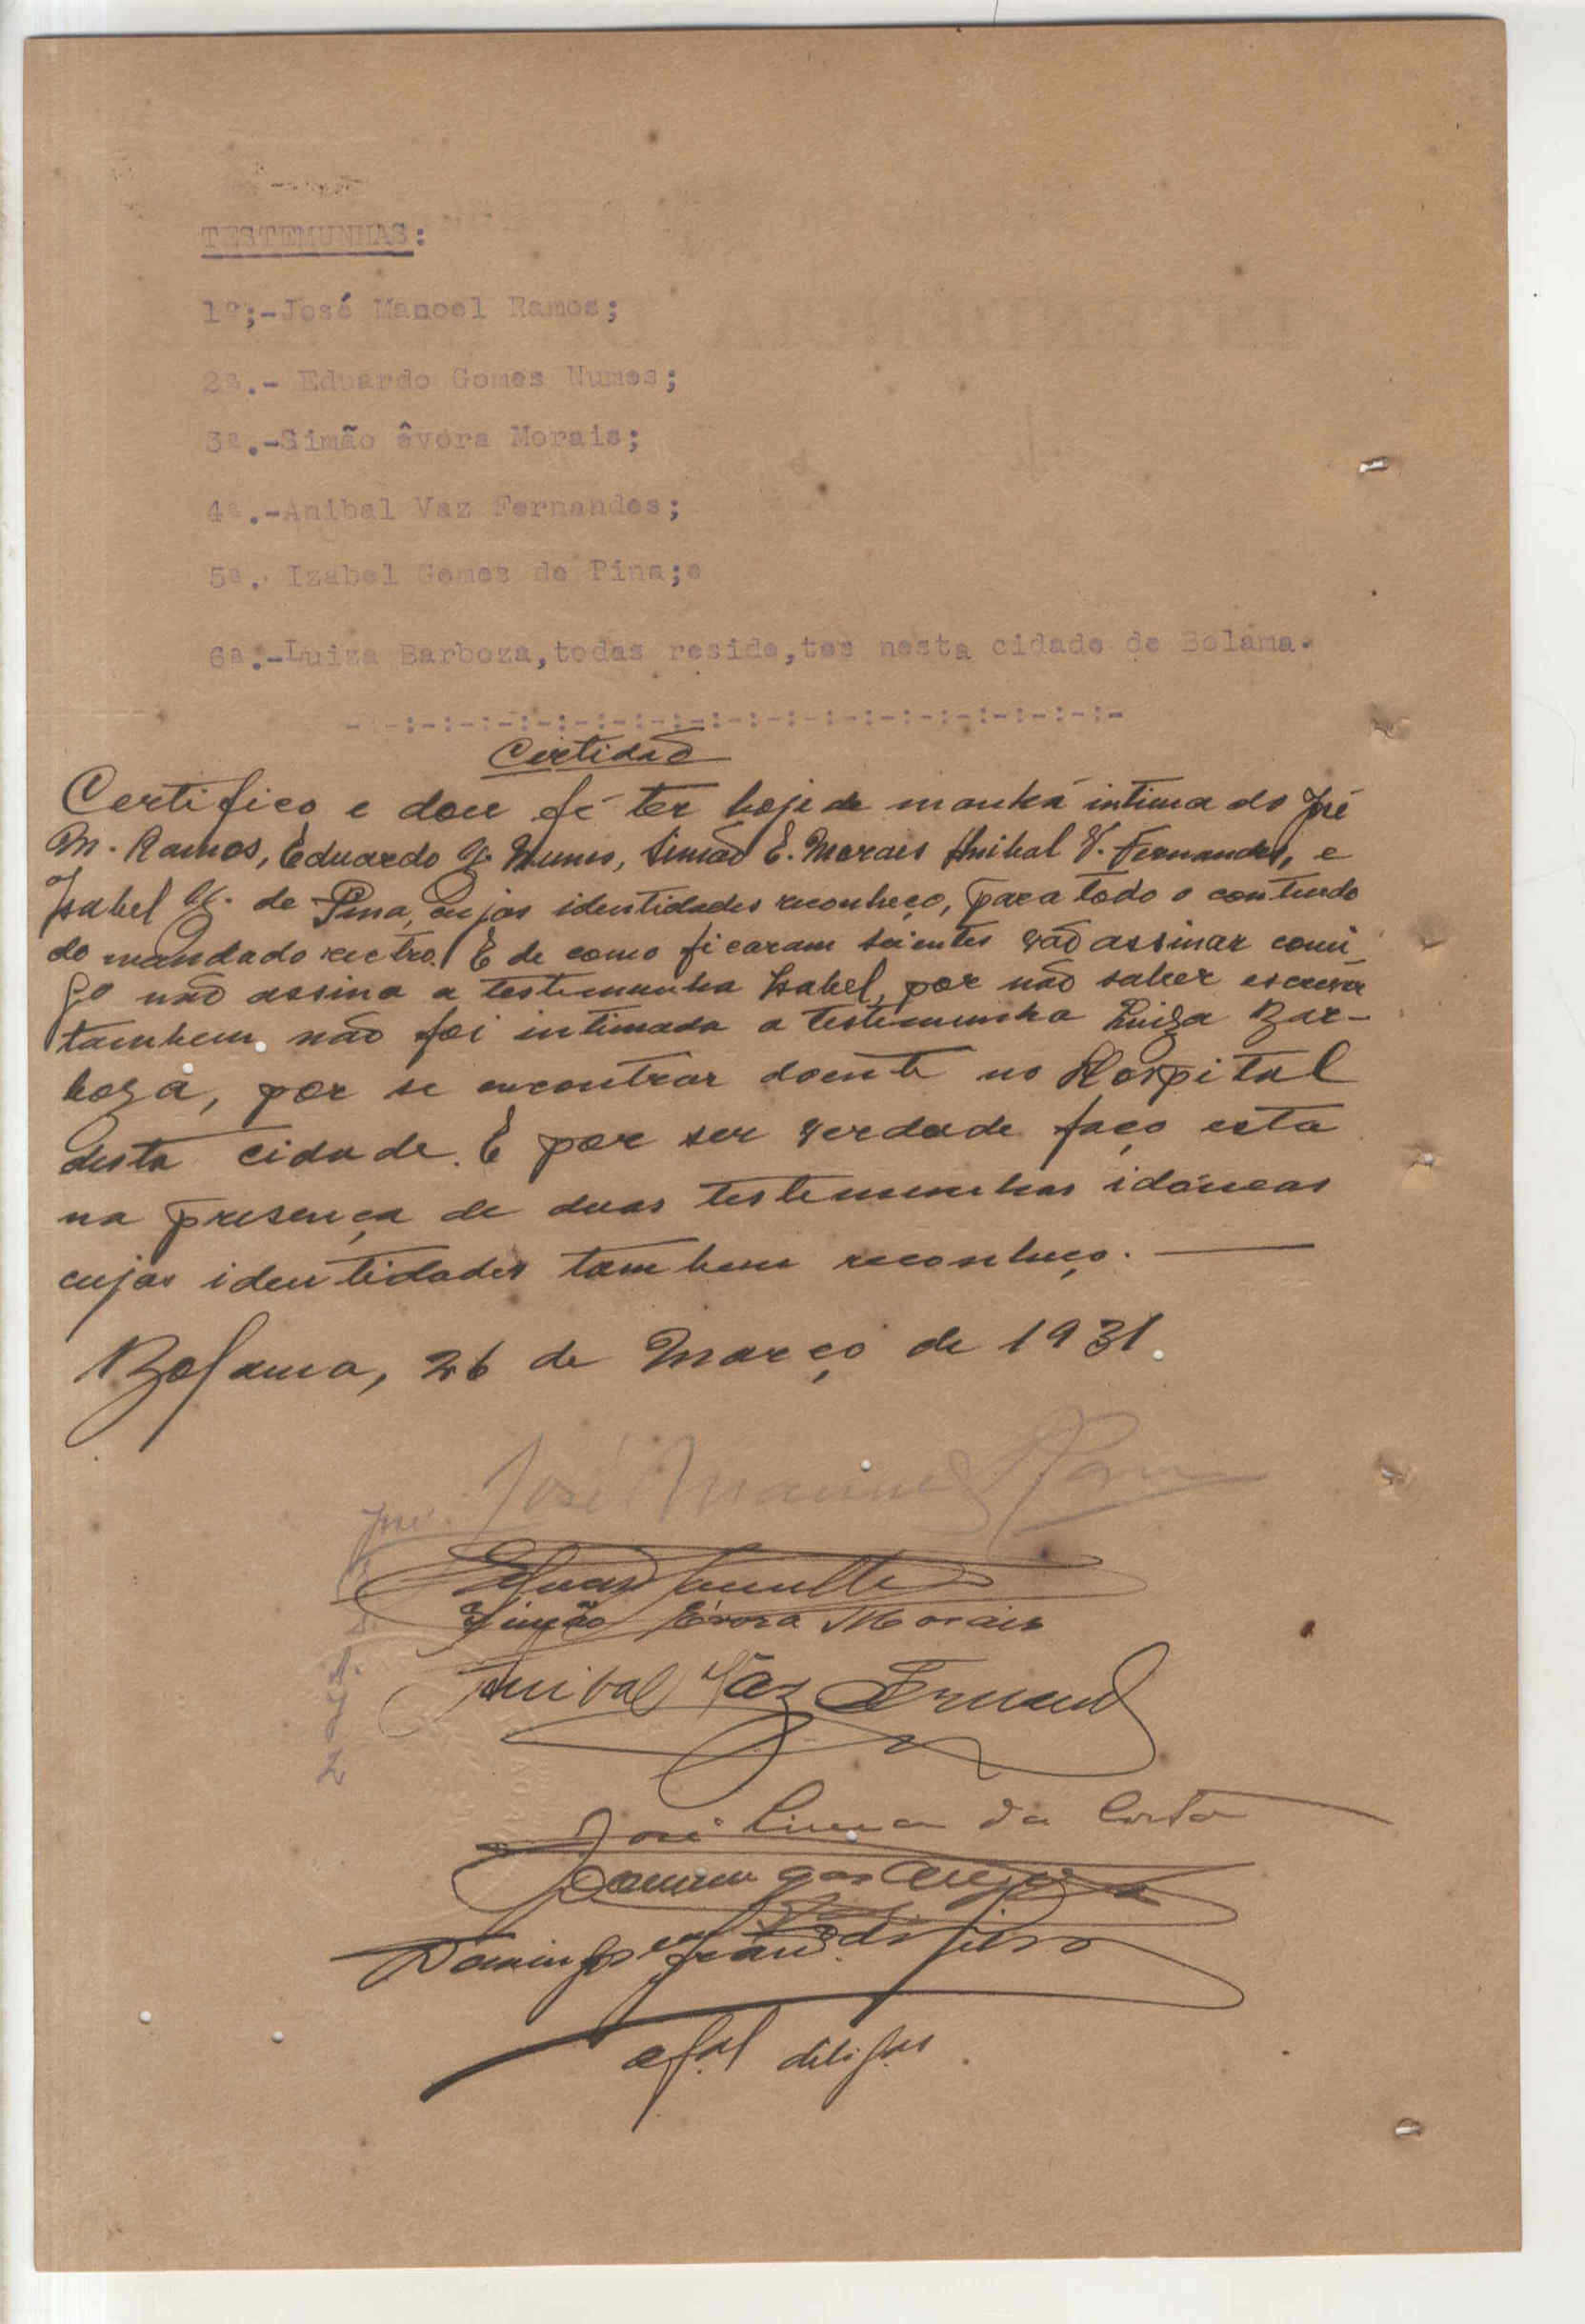 TESTEMUNHAS:
1ª;-José Manoel Ramos;
2ª.- Eduardo Gomes Nunes;
3ª.-Simão êvora Morais;
4ª.-Anibal Vaz Fernandes;
5ª. Izabel Gomes de Pina;e
6ª.-Luiza Barboza,todas reside,tes nesta cidade de Bolama.
- -:-:-:-:-:-:-:-:-:-:-:-:-:-:-:-:-:-:-:-
Certidão
Certifico e dou fé ter hoje de manhã intimado José
M. Ramos, Eduardo G. Nunes, Simão E. Morais Anibal V. Fernandes, e
Isabel G. de Pina, cujas identidades reconheço, para todo o conteudo
do mandado rectro. E de como ficaram scientes vão assinar comi-
go não assina a testemunha Isabel, por não saber escrever
tambem não foi intimada a testemunha Luiza Bar-
boza, por se encontrar doente no Hospital
desta cidade. E por ser verdade faço esta
na presença de duas testemunhas idóneas
cujas identidades tambem reconheço.
Bolama, 26 de Março de 1931.
José Manuel Ramos
Simão Évora Morais
Anibal Vaz Fernand
José Lima da Costa
Domingos